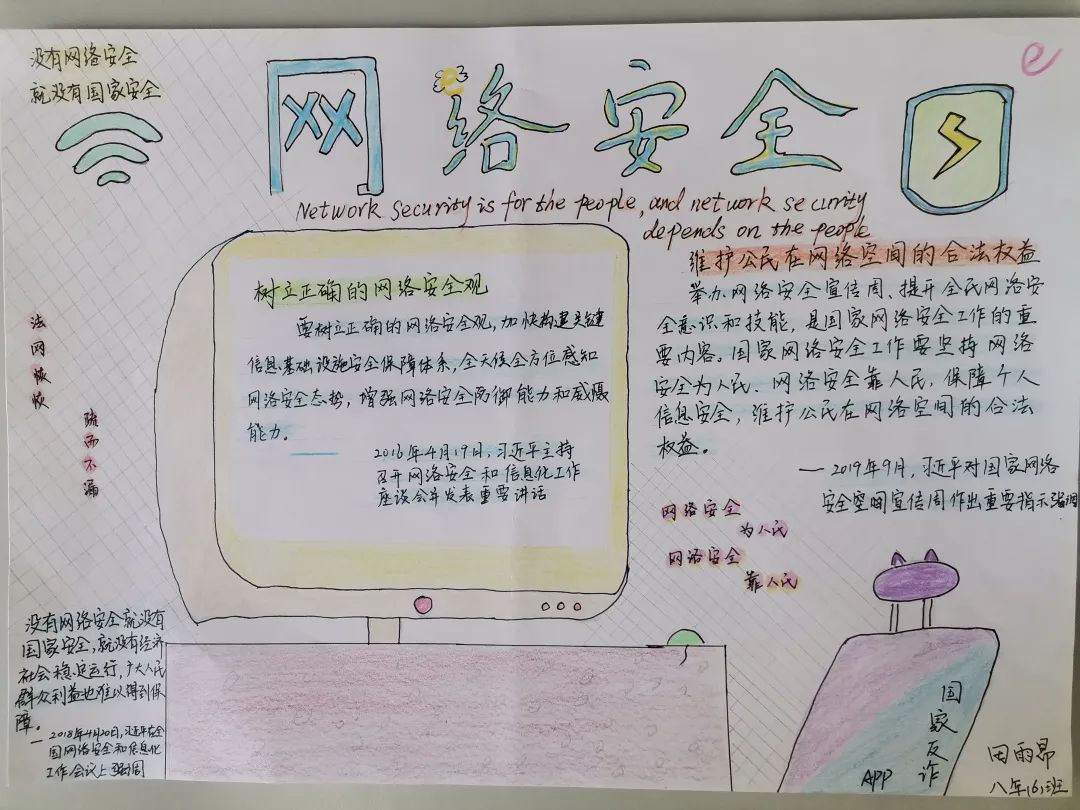 没有网络安全
就没有国家安全
网络安全
e
e
Network security is for the people, and network security
depends on the people
树立正确的网络安全观
要树立正确的网络安全观,加快构建关键
信息基础设施安全保障体系,全天候全方位感知
网络安全态势,增强网络安全防御能力和威慑
能力。
2016年4月19日,习近平主持
召开网络安全和信息化工作
座谈会并发表重要讲话
维护公民在网络空间的合法权益
举办网络安全宣传周、提升全民网络安
全意识和技能,是国家网络安全工作的重
要内容。国家网络安全工作要坚持网络
安全为人民、网络安全靠人民,保障个人
信息安全,维护公民在网络空间的合法
权益。
— 2019年9月,习近平对国家网络
安全空间宣传周作出重要指示强调
法网恢恢
疏而不漏
网络安全
为人民
网络安全
靠人民
没有网络安全就没有
国家安全,就没有经济
社会稳定运行,广大人民
群众利益也难以得到保
障。
— 2018年4月20日,习近平在全
国网络安全和信息化
工作会议上强调
国家反诈
APP
田雨昂
八年(6)班